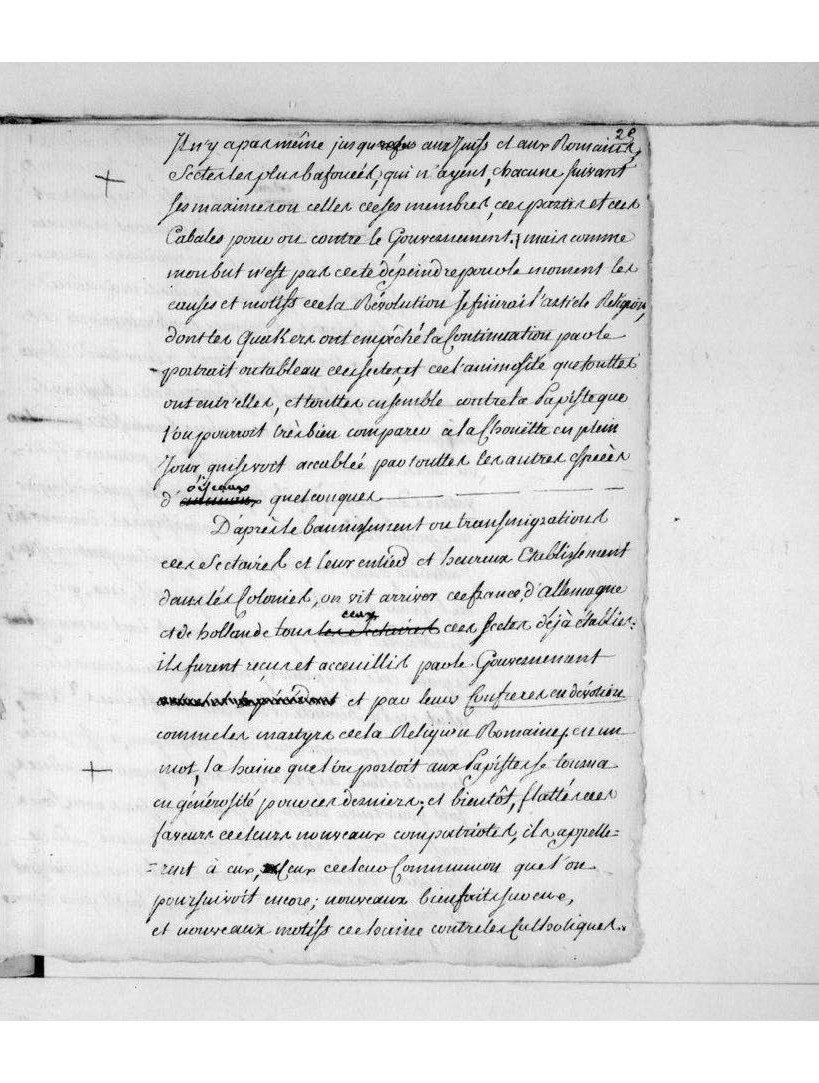 28
Il n'y a pas même jusqu' aux Juifs et aux Romains,
Sectes les plus bafouées, qui n'ayent, chacune suivant
ses maximes ou celles de ses membres, des partis et des
Cabales pour ou contre le Gouvernement; mais comme
mon but n'est pas de te dépeindre pour le moment les
causes et motifs de la Révolution Je finirai l'article Religion,
dont les Quakers ont empêché la Continuation par le
portrait ou tableau des sectes, et de l'animosité que touttes
ont entr'elles, et touttes ensemble contre la Papiste que
l'on pourroit très bien comparer à la Chouëtte en plein
Jour qui se voit accablée par touttes les autres espèces
oiseaux
d'animaux quelconques
D'après le bannissement ou transmigrations
des Sectaires et leur entier et heureux Etablissement
dans les Colonies, on vit arriver de france, d'allemagne
ceux
et de hollande tous les sectaires des Sectes déjà établies:
ils furent reçus et acceuillis par le Gouvernement
et par leurs Confreres en dévotion
comme les martyrs de la Religion Romaine; en un
mot, la haine que l'on portoit aux Papistes se tourna
en générosité pour ces derniers, et bientôt, flattés des
faveurs de leurs nouveaux compatriotes, ils appelle=
=rent à eux, Ceux de leur Communion que l'on
poursuivoit encore; nouveaux bienfaits pour eux,
et nouveaux motifs de haine contre les Catholiques.